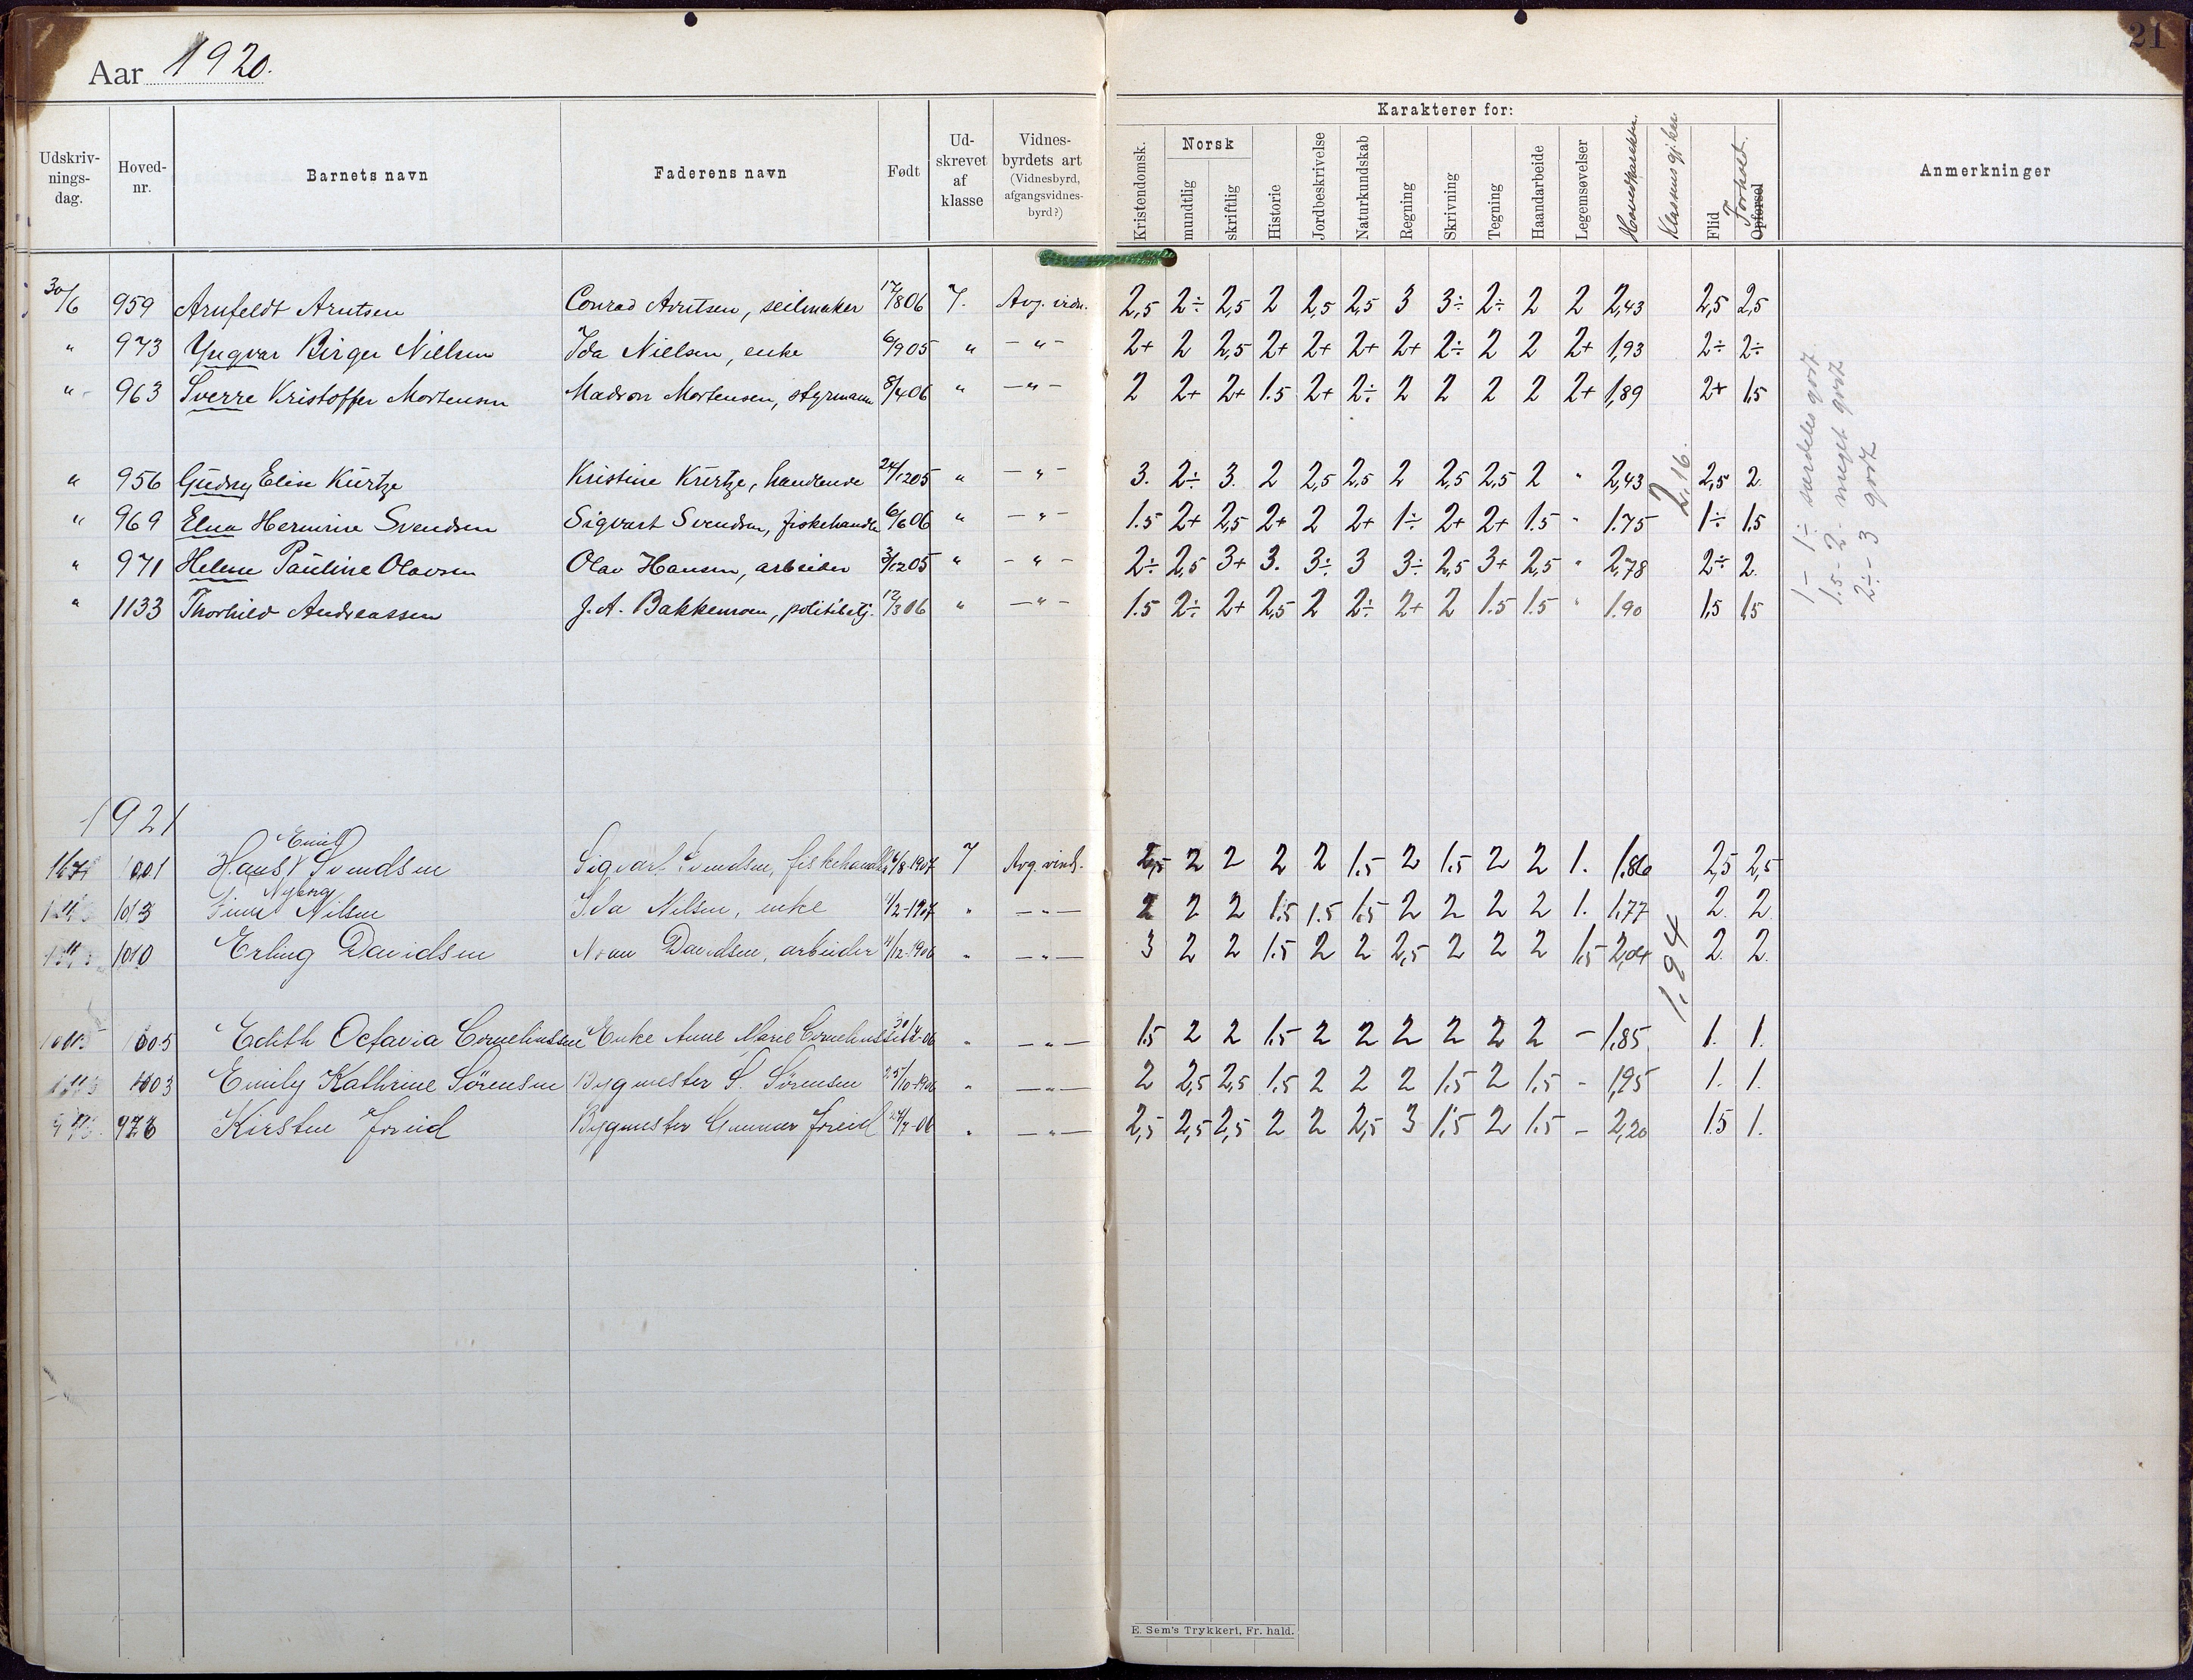 Aar 1920.
21
Udskriv-nings-dag. Hoved-nr. Barnets navn Faderens navn Født Ud-skrevet af klasse Vidnes-byrdets art (Vidnesbyrd, afgangsvidnes-byrd?)
Karakterer for:
Kristendomsk. Norsk mundtlig skriftlig Historie Jordbeskrivelse Naturkundskab Regning Skrivning Tegning Haandarbeide Legemsøvelser Hovedkarakter. Klassens gj.kar Flid Opførsel Forhold. Anmerkninger
30/6 959 Arnfeldt Arntsen Conrad Arntsen, seilmaker 17/8 06 7. Avg. vidn. 2,5 2÷ 2,5 2 2,5 2,5 3 3÷ 2÷ 2 2 2,43 2,5 2,5
" 973 Yngvar Birger Nielsen Ida Nielsen, enke 6/9 05 " - " - 2+ 2 2,5 2+ 2+ 2+ 2+ 2÷ 2 2 2+ 1,93 2÷ 2÷
" 963 Sverre Kristoffer Mortensen Madson Mortensen, styrmann 8/4 06 " - " - 2 2+ 2+ 1.5 2+ 2÷ 2 2 2 2 2+ 1,89 2+ 1,5
" 956 Gudny Elise Kürtze Kristine Kürtze, handlende 24/12 05 " - " - 3. 2÷ 3. 2 2,5 2,5 2 2,5 2,5 2 " 2,43 2,5 2.
" 969 Elna Hermine Svendsen Sigvart Svendsen, fiskehandle 6/6 06 " - " - 1.5 2+ 2,5 2+ 2 2+ 1÷ 2+ 2+ 1.5 " 1.75 2,16. 1÷ 1.5
" 971 Helene Pauline Olavsen Olav Hansen, arbeider 3/12 05 " - " - 2÷ 2,5 3+ 3. 3÷ 3 3÷ 2,5 3+ 2,5 " 2,78 2÷ 2.
" 1133 Thorhild Andreassen J. A. Bakkemoen, politibetj. 12/3 06 " - " - 1.5 2÷ 2+ 2,5 2 2÷ 2+ 2 1.5 1.5 " 1.90 1.5 1.5
1 - 1÷ særdeles godt
1.5 - 2. meget godt
2÷ - 3 godt
1921
1001 Hans Emil Svendsen Sigvart Svendsen, fiskehandle 6/8-1907 7 Avg. vind. 2,5 2 2 2 2 1.5 2 1.5 2 2 1. 1.86 2,5 2,5
1013 Nyborg Nilsen Ida Nilsen, enke /2-1907 " - " - 2 2 2 1.5 1.5 1.5 2 2 2 2 1. 1,77 2. 2.
1010 Erling Davidsen Davidsen, arbeider 11/12-1906 " - " - 3 2 2 1.5 2 2 2,5 2 2 2 1.5 2,04 1,94 2. 2.
1005 Edith Octavia Corneliussen Enke Anne Marie Corneliussen 30/4-06 " - " - 1.5 2 2 1.5 2 2 2 2 2 2 - 1,85 1. 1.
1003 Emily Kathrine Sörensen Bygmester S. Sörensen 25/10-1906 " - " - 2 2,5 2,5 1.5 2 2 2 1.5 2 1.5 - 1,95 1. 1.
978 Kirsten Foreid Bygmester Gunner Foreid 24/7-06 " - " - 2,5 2,5 2,5 2 2 2,5 3 1.5 2 1.5 - 2,20 1.5 1.
E. Sem's Trykkeri, Fr. hald.